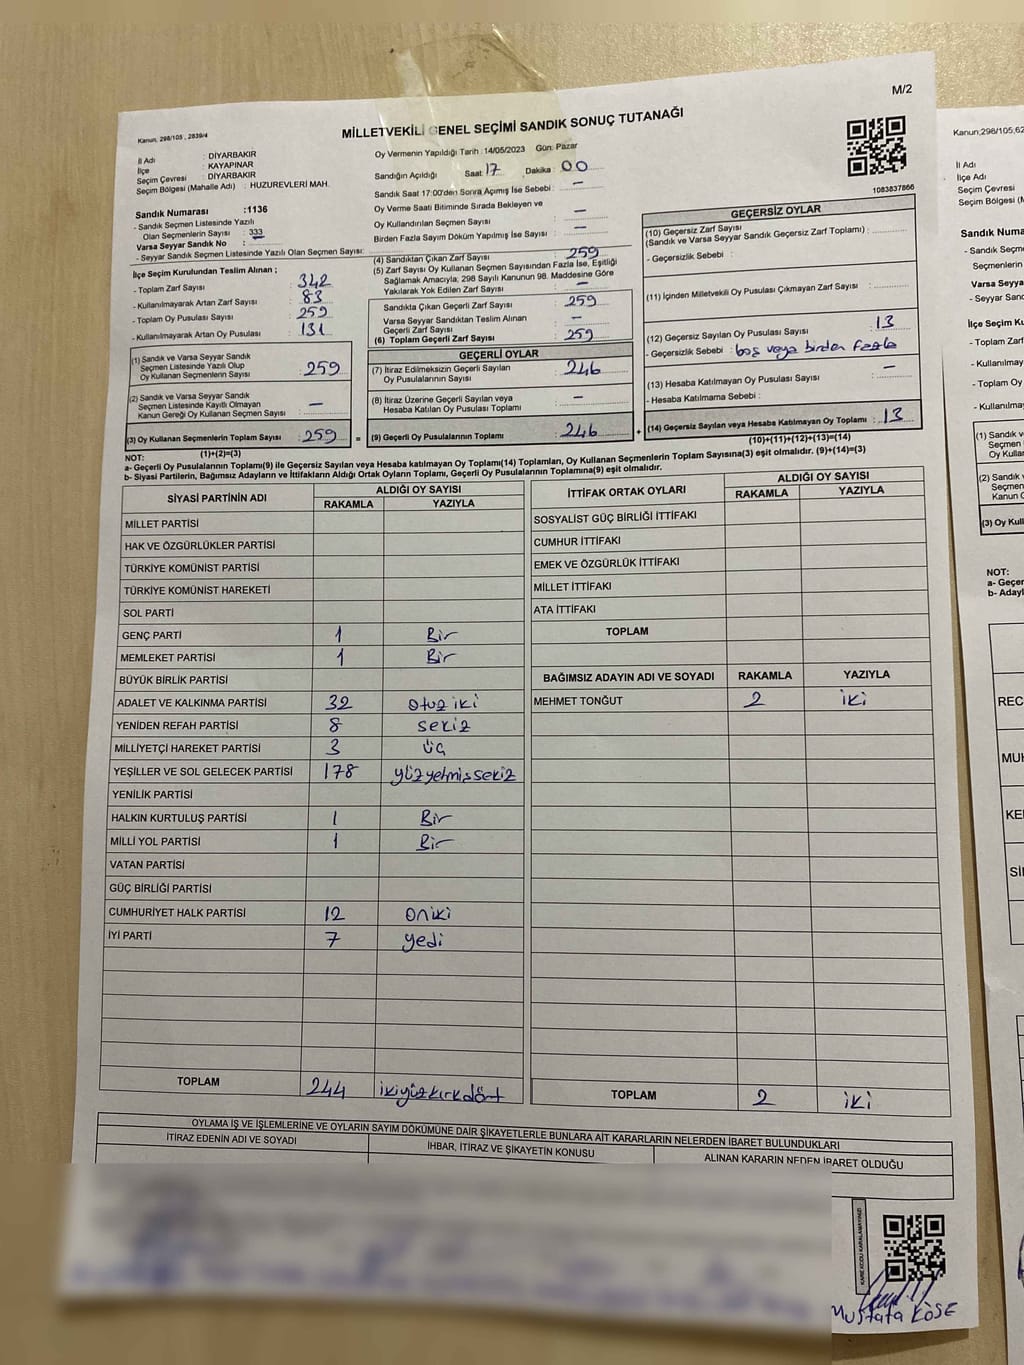 M/2
Kanun, 298/105 , 2839/4
MİLLETVEKİLİ GENEL SEÇİMİ SANDIK SONUÇ TUTANAĞI
İl Adı : DİYARBAKIR
İlçe : KAYAPINAR
Seçim Çevresi : DİYARBAKIR
Seçim Bölgesi (Mahalle Adı) : HUZUREVLERİ MAH.
Sandık Numarası :1136
- Sandık Seçmen Listesinde Yazılı
Olan Seçmenlerin Sayısı : 333
Varsa Seyyar Sandık No :
- Seyyar Sandık Seçmen Listesinde Yazılı Olan Seçmen Sayısı:
İlçe Seçim Kurulundan Teslim Alınan ;
- Toplam Zarf Sayısı : 342
- Kullanılmayarak Artan Zarf Sayısı : 83
- Toplam Oy Pusulası Sayısı : 259
- Kullanılmayarak Artan Oy Pusulası : 131
(1) Sandık ve Varsa Seyyar Sandık
Seçmen Listesinde Yazılı Olup
Oy Kullanan Seçmenlerin Sayısı : 259
(2) Sandık ve Varsa Seyyar Sandık
Seçmen Listesinde Kayıtlı Olmayan
Kanun Gereği Oy Kullanan Seçmen Sayısı : –
(3) Oy Kullanan Seçmenlerin Toplam Sayısı : 259 =
(1)+(2)=(3)
Oy Vermenin Yapıldığı Tarih : 14/05/2023 Gün: Pazar
Sandığın Açıldığı Saat: 17 Dakika : 00
Sandık Saat 17:00'den Sonra Açılmış İse Sebebi : –
Oy Verme Saati Bitiminde Sırada Bekleyen ve
Oy Kullandırılan Seçmen Sayısı : –
Birden Fazla Sayım Döküm Yapılmış İse Sayısı : –
(4) Sandıktan Çıkan Zarf Sayısı : 259
(5) Zarf Sayısı Oy Kullanan Seçmen Sayısından Fazla İse, Eşitliği
Sağlamak Amacıyla; 298 Sayılı Kanunun 98. Maddesine Göre
Yakılarak Yok Edilen Zarf Sayısı : –
Sandıkta Çıkan Geçerli Zarf Sayısı : 259
Varsa Seyyar Sandıktan Teslim Alınan
Geçerli Zarf Sayısı : –
(6) Toplam Geçerli Zarf Sayısı : 259
GEÇERLİ OYLAR
(7) İtiraz Edilmeksizin Geçerli Sayılan
Oy Pusulalarının Sayısı : 246
(8) İtiraz Üzerine Geçerli Sayılan veya
Hesaba Katılan Oy Pusulası Toplamı : –
(9) Geçerli Oy Pusulalarının Toplamı : 246 +
1083837866
GEÇERSİZ OYLAR
(10) Geçersiz Zarf Sayısı
(Sandık ve Varsa Seyyar Sandık Geçersiz Zarf Toplamı) :
- Geçersizlik Sebebi :
(11) İçinden Milletvekili Oy Pusulası Çıkmayan Zarf Sayısı :
(12) Geçersiz Sayılan Oy Pusulası Sayısı : 13
- Geçersizlik Sebebi : boş veya birden fazla
(13) Hesaba Katılmayan Oy Pusulası Sayısı : –
- Hesaba Katılmama Sebebi :
(14) Geçersiz Sayılan veya Hesaba Katılmayan Oy Toplamı : 13
(10)+(11)+(12)+(13)=(14)
NOT:
a- Geçerli Oy Pusulalarının Toplamı(9) ile Geçersiz Sayılan veya Hesaba katılmayan Oy Toplamı(14) Toplamları, Oy Kullanan Seçmenlerin Toplam Sayısına(3) eşit olmalıdır. (9)+(14)=(3)
b- Siyasi Partilerin, Bağımsız Adayların ve İttifakların Aldığı Ortak Oyların Toplamı, Geçerli Oy Pusulalarının Toplamına(9) eşit olmalıdır.
SİYASİ PARTİNİN ADI ALDIĞI OY SAYISI
RAKAMLA YAZIYLA
MİLLET PARTİSİ
HAK VE ÖZGÜRLÜKLER PARTİSİ
TÜRKİYE KOMÜNİST PARTİSİ
TÜRKİYE KOMÜNİST HAREKETİ
SOL PARTİ
GENÇ PARTİ 1 Bir
MEMLEKET PARTİSİ 1 Bir
BÜYÜK BİRLİK PARTİSİ
ADALET VE KALKINMA PARTİSİ 32 otuz iki
YENİDEN REFAH PARTİSİ 8 sekiz
MİLLİYETÇİ HAREKET PARTİSİ 3 üç
YEŞİLLER VE SOL GELECEK PARTİSİ 178 yüzyetmişsekiz
YENİLİK PARTİSİ
HALKIN KURTULUŞ PARTİSİ 1 Bir
MİLLİ YOL PARTİSİ 1 Bir
VATAN PARTİSİ
GÜÇ BİRLİĞİ PARTİSİ
CUMHURİYET HALK PARTİSİ 12 oniki
İYİ PARTİ 7 yedi
TOPLAM 244 ikiyüzkırkdört
İTTİFAK ORTAK OYLARI ALDIĞI OY SAYISI
RAKAMLA YAZIYLA
SOSYALİST GÜÇ BİRLİĞİ İTTİFAKI
CUMHUR İTTİFAKI
EMEK VE ÖZGÜRLÜK İTTİFAKI
MİLLET İTTİFAKI
ATA İTTİFAKI
TOPLAM
BAĞIMSIZ ADAYIN ADI VE SOYADI RAKAMLA YAZIYLA
MEHMET TONĞUT 2 iki
TOPLAM 2 iki
OYLAMA İŞ VE İŞLEMLERİNE VE OYLARIN SAYIM DÖKÜMÜNE DAİR ŞİKAYETLERLE BUNLARA AİT KARARLARIN NELERDEN İBARET BULUNDUKLARI
İTİRAZ EDENİN ADI VE SOYADI İHBAR, İTİRAZ VE ŞİKAYETİN KONUSU ALINAN KARARIN NEDEN İBARET OLDUĞU
KARE KODU KARALAMAYINIZ!
Mustafa KÖSE
Kanun,298/105,62
İl Adı
İlçe Adı
Seçim Çevresi
Seçim Bölgesi (M
Sandık Numa
- Sandık Seçm
Seçmenlerin
Varsa Seyyar
- Seyyar Sand
İlçe Seçim K
- Toplam Zarf
- Kullanılmay
- Toplam Oy
- Kullanılma
(1) Sandık v
Seçmen
Oy Kulla
(2) Sandık v
Seçmen
Kanun G
(3) Oy Kull
NOT:
a- Geçer
b- Adayl
REC
MUH
KE
Sİ